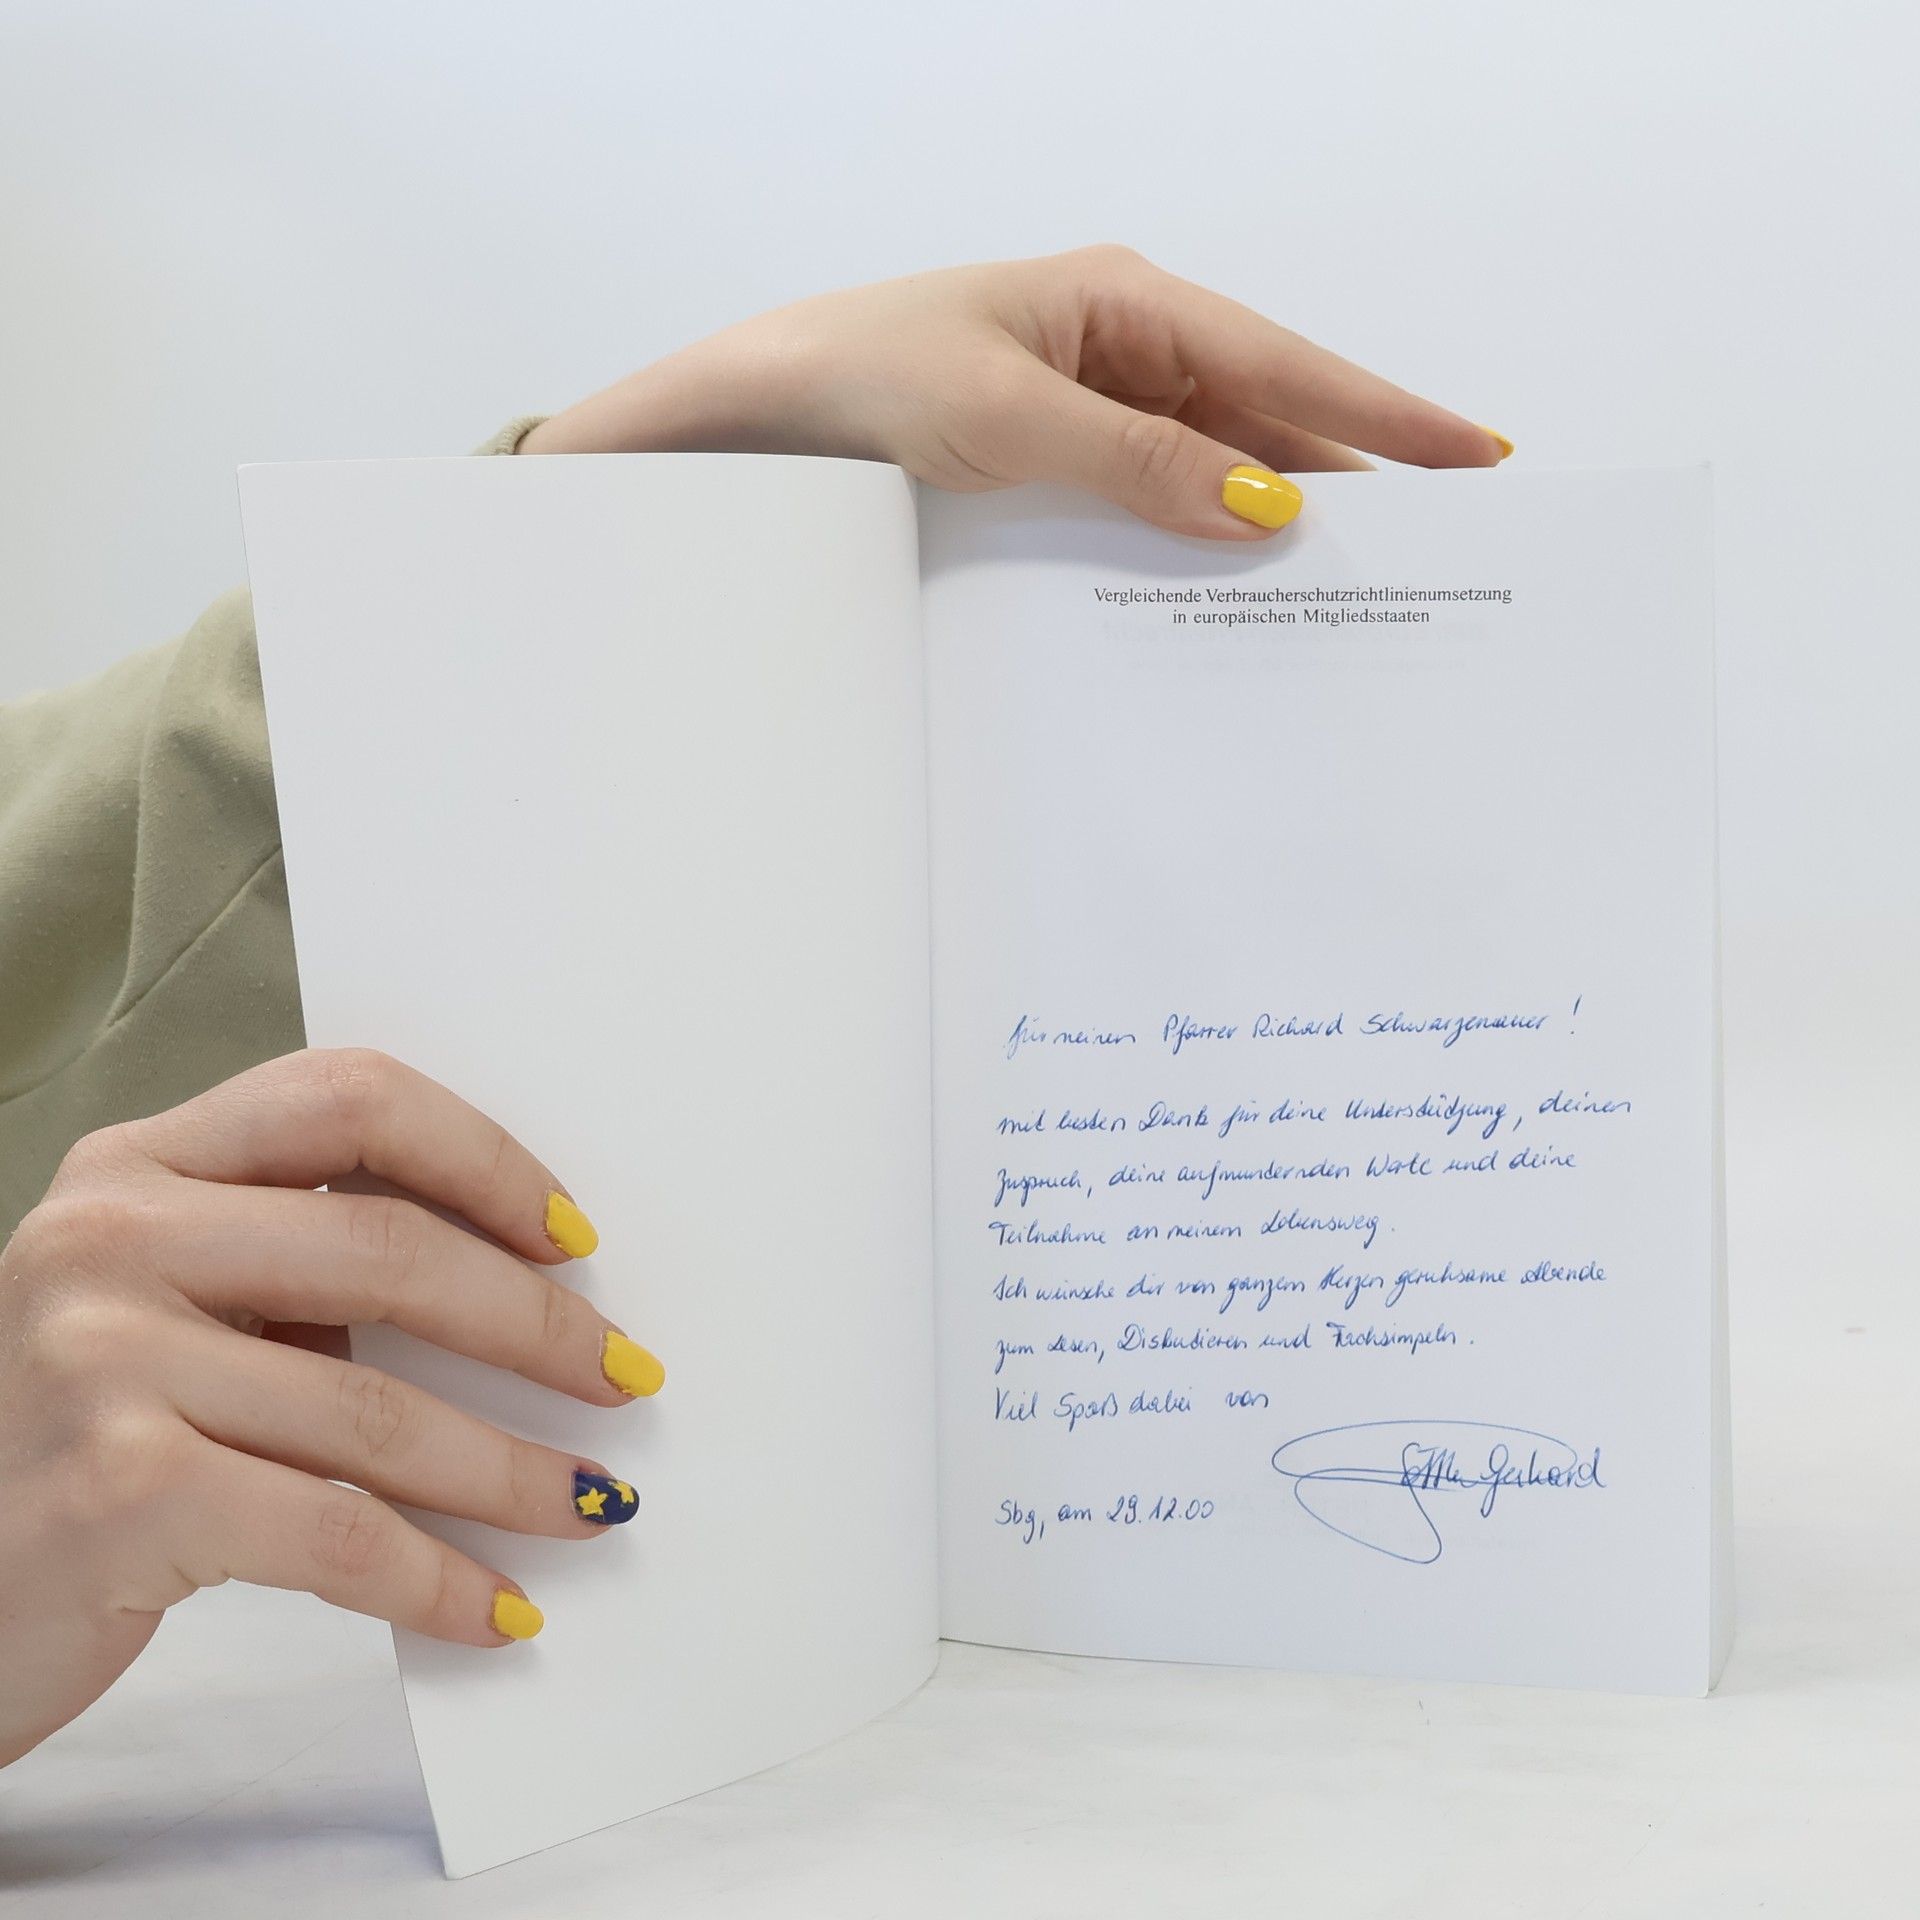 Vergleichende Verbraucherschutzrichtlinienumsetzung
in europäischen Mitgliedsstaaten
für meinen Pfarrer Richard Schwarzenauer!
mit besten Dank für deine Unterstützung, deinen
Zuspruch, deine aufmunternden Worte und deine
Teilnahme an meinem Lebensweg.
Ich wünsche dir von ganzem Herzen geruhsame Abende
zum Lesen, Diskutieren und Fachsimpeln.
Viel Spaß dabei von
Gerhard
Sbg, am 29.12.00